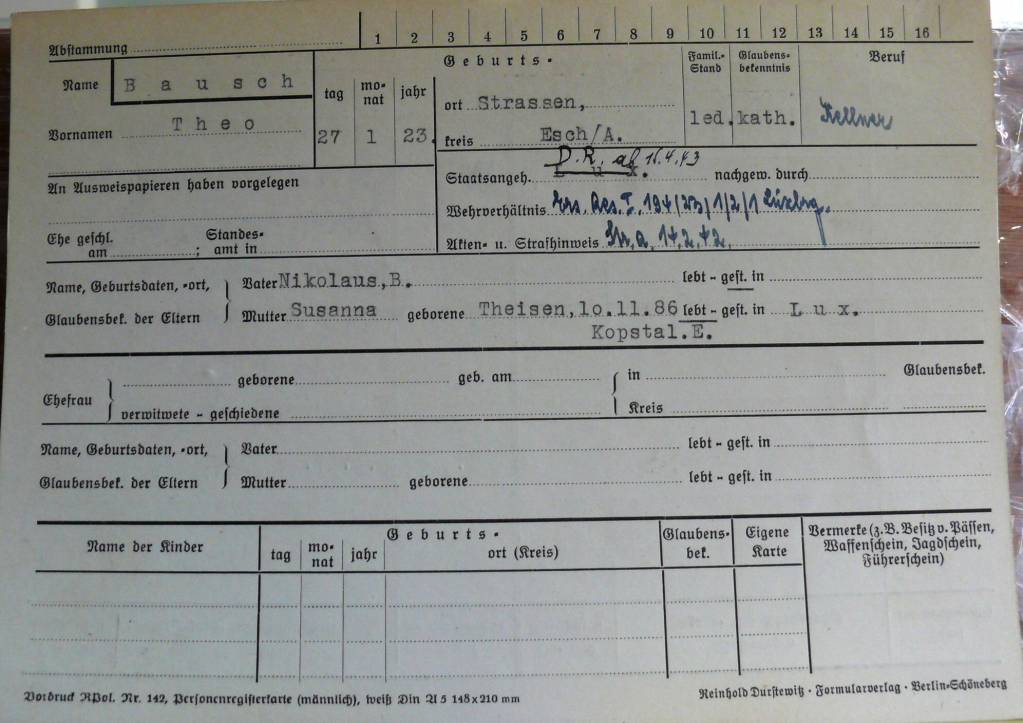 Abstammung
1 2 3 4 5 6 7 8 9 10 11 12 13 14 15 16
Name Bausch
Vornamen Theo
Geburts-
tag monat jahr
27 1 23.
ort Strassen,
kreis Esch/A.
Famil.-Stand
led.
Glaubens-
bekenntnis
kath.
Beruf
Kellner
An Ausweispapieren haben vorgelegen
D.R. ab 16.4.43
Staatsangeh. Lux. nachgew. durch
Wehrverhältnis Ers. Res. I, 194/23/1/2/1 Luxbg.
Ehe geschl. am ; Standes-
amt in
Akten- u. Strafhinweis Str. a. 14.2.42.
Name, Geburtsdaten, -ort, Vater Nikolaus,B. lebt - gest. in
Glaubensbek. der Eltern Mutter Susanna geborene Theisen,10.11.86 lebt - gest. in Lux.
Kopstal.E.
Ehefrau geborene geb. am in Glaubensbek.
verwitwete - geschiedene Kreis
Name, Geburtsdaten, -ort, Vater lebt - gest. in
Glaubensbek. der Eltern Mutter geborene lebt - gest. in
Name der Kinder
Geburts-
tag monat jahr ort (Kreis)
Glaubens-
bek.
Eigene
Karte
Vermerke (z.B. Besitz v. Pässen,
Waffenschein, Jagdschein,
Führerschein)
Vordruck RPol. Nr. 142, Personenregisterkarte (männlich), weiß Din A 5 148x210 mm
Reinhold Durstewitz · Formularverlag · Berlin-Schöneberg